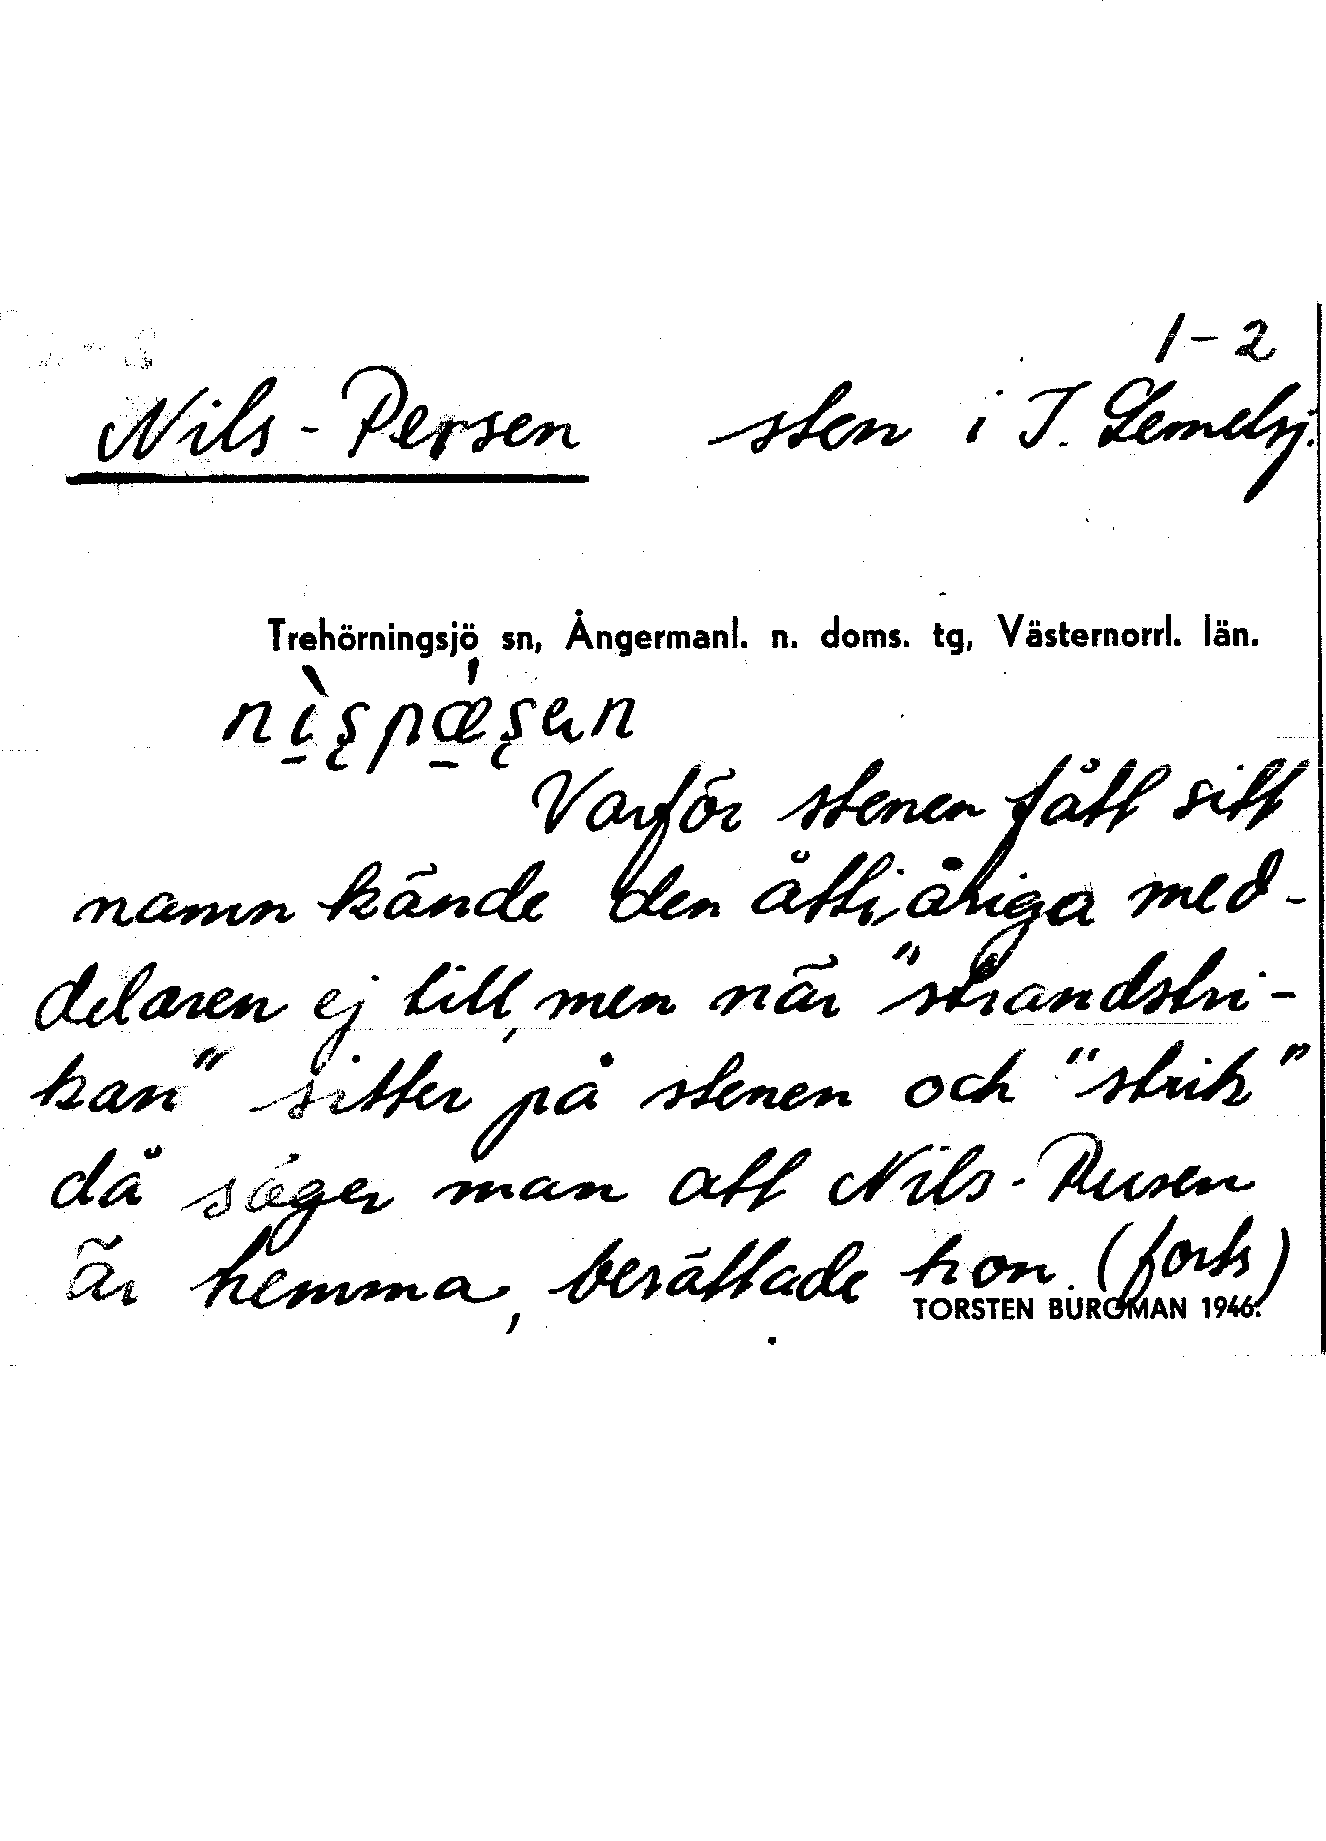 1-2
Nils-Persen sten i T. Lemelsj.
Trehörningsjö sn, Ångermanl. n. doms. tg, Västernorrl. län.
Varför stenen fått sitt
namn kände den åttiåriga med-
delaren ej till, men när "strandstri-
kan" sitter på stenen och "strik"
då säger man att Nils-Persen
är hemma, berättade hon. (forts)
TORSTEN BURGMAN 1946.